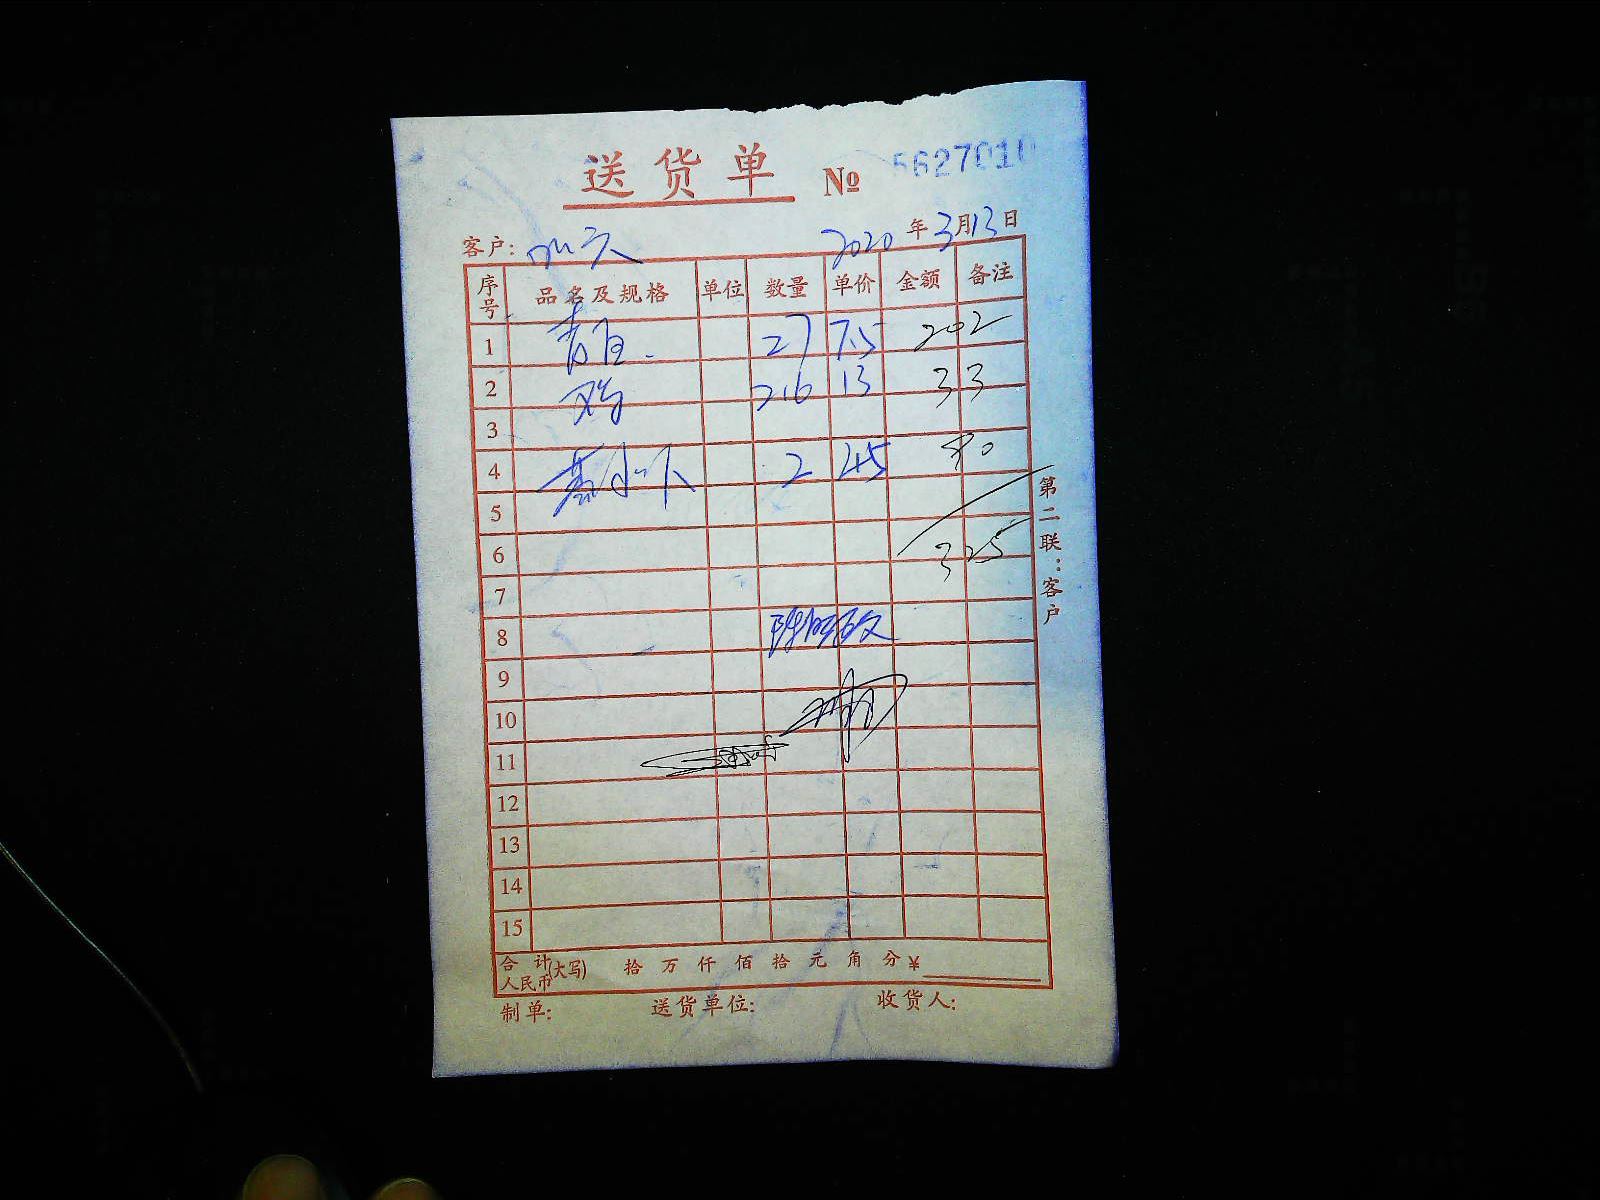 送货单 № 5627010
客户: 2020年3月13日
序号 品名及规格 单位 数量 单价 金额 备注
1 27 7.5 202
2 鸡 2.6 13 33
3
4 2 45 90
5
6 325
7
8
9
10
11
12
13
14
15
合计人民币(大写) 拾 万 仟 佰 拾 元 角 分 ¥
制单: 送货单位: 收货人:
第二联：客户